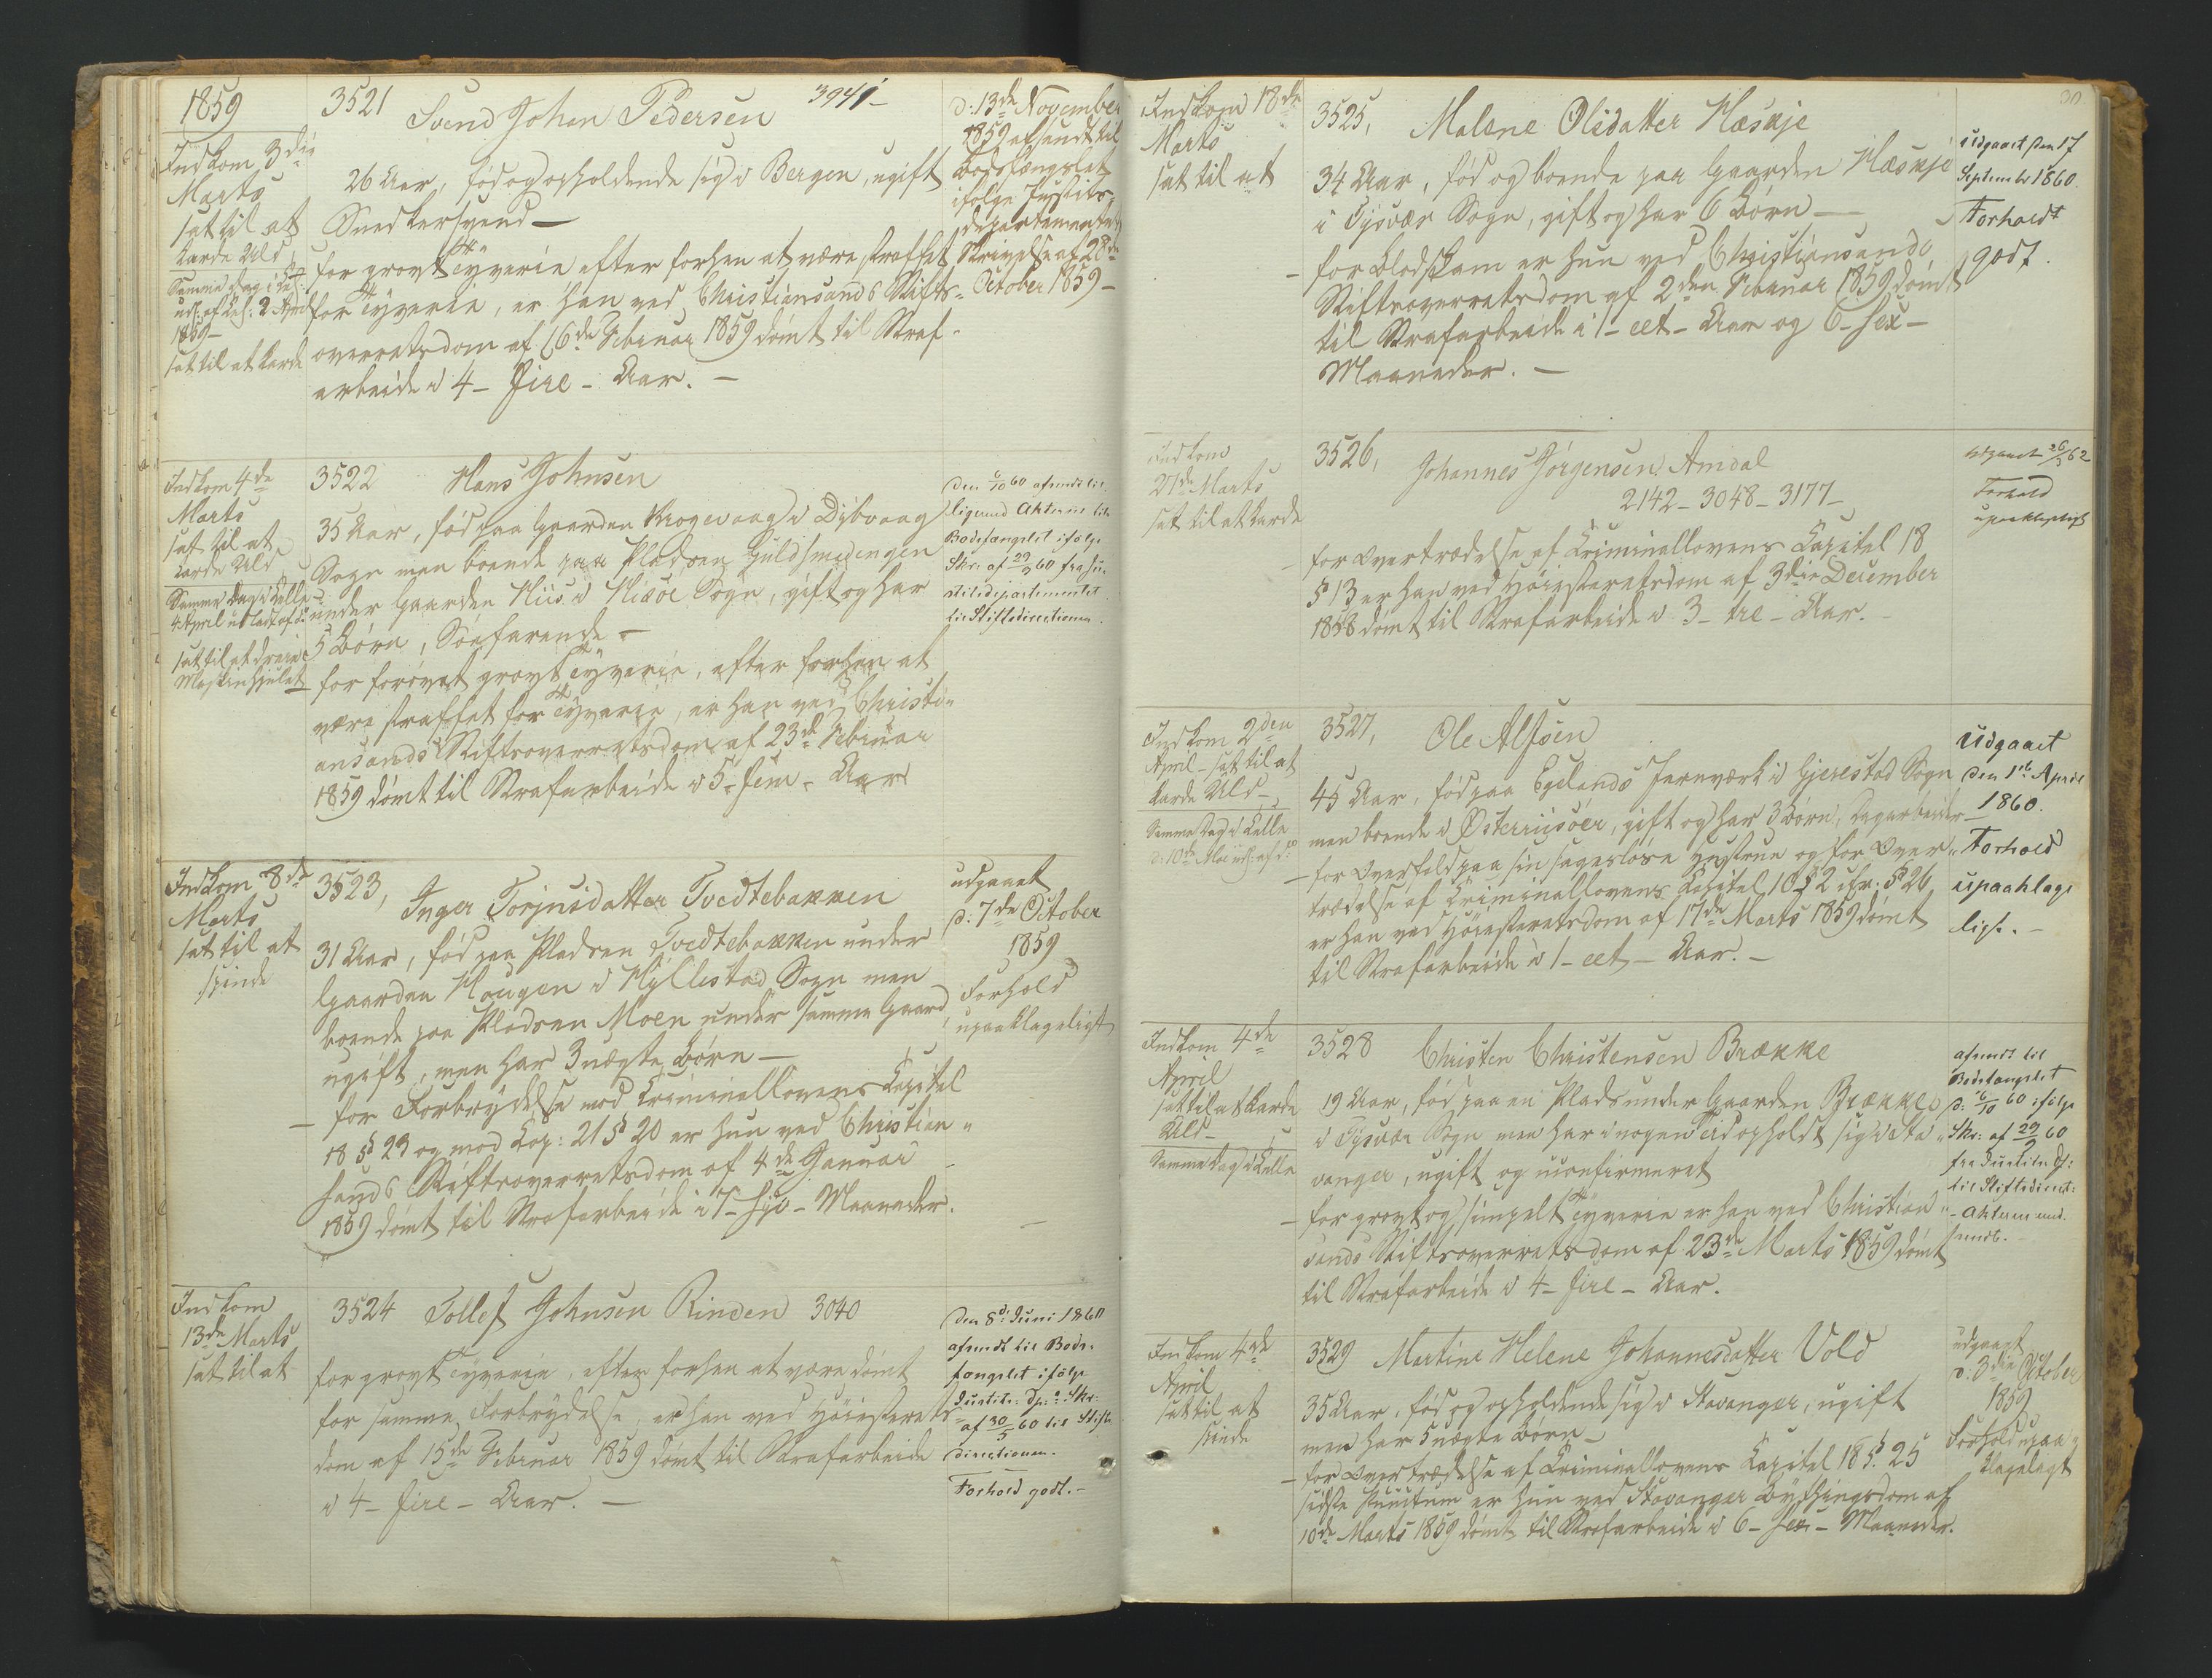 1859
Indkom 3die
Marts
sat til at
karde Uld
Samme Dag i Celle
uds. af Cel. 2 April
1859 -
sat til at karde
3521 Svend Johan Pedersen 3941 -
26 Aar, fød og opholdende sig i Bergen, ugift
Snedkersvend -
for grovt Tyverie efter forhen at være straffet
for Tyverie, er han ved Christiansands Stifts-
overretsdom af 16de Februar 1859 dømt til Straf-
arbeide i 4 - fire - Aar. -
d. 13de November
1859 afsendt til
Bodsfængslet
ifølge Justits-
departementets
Skrivelse af 28de
October 1859 -
Indkom 4de
Marts
sat til at
karde Uld
Samme Dag i Celle
4 April udladt af d:
sat til at dreie
Maskinhjulet
3522 Hans Johnsen
35 Aar, fød paa Gaarden Krogevaag i Dybvaag
Sogn men boende paa Pladsen Guldsmedengen
under Gaarden Hiis i Hisøe Sogn, gift og har
5 Børn, Søefarende -
for forøvet grovt Tyverie, efter forhen at
være straffet for Tyverie, er han ved Christi-
ansands Stiftsoverretsdom af 23de Februar
1859 dømt til Strafarbeide i 5 - fem - Aar
Den 6/10 60 afsendt til
ligemed Akterne til
Bodsfængslet ifølge
Skr: af 29/9 60 fra Ju-
stitsdepartementet
til Stiftsdirectionen.
Indkom 8de
Marts
sat til at
spinde
3523, Inger Torjusdatter Tvedtebakken
31 Aar, fød paa Pladsen Tvedtebakken under
Gaarden Hougen i Hyllestad Sogn men
boende paa Pladsen Moen under samme Gaard,
ugift, men har 3 uægte Børn -
- for Forbrydelse mod Criminallovens Capitel
18 § 23 og mod Cap: 21 § 20 er hun ved Christian-
sands Stiftsoverretsdom af 4de Januar
1859 dømt til Strafarbeide i 7 - syv - Maaneder.
udgaaet
d. 7de October
1859
Forhold
upaaklageligt
Indkom
13de Marts
sat til at
3524 Tollef Johnsen Rinden 3040
for grovt Tyverie, efter forhen at være dømt
for samme Forbrydelse, er han ved Høiesterets-
dom af 15de Februar 1859 dømt til Strafarbeide
i 4 - fire - Aar. -
Den 8de Juni 1860
afsendt til Bods-
fængslet ifølge
Justits: Dp:s Skr:
af 30/5 60 til Stifts
directionen.
Forhold godt. -
30.
Indkom 18de
Marts
sat til at
3525, Malene Olsdatter Hæskje
34 Aar, fød og boende paa Gaarden Hæskje
i Tysvær Sogn, gift og har 6 Børn -
- for Blodskam er hun ved Christiansands
Stiftsoverretsdom af 2den Februar 1859 dømt
til Strafarbeide i 1 - eet - Aar og 6 - sex -
Maaneder. -
Udgaaet den 17
September 1860.
Forholdt
godt.
Indkom
21de Marts
sat til at karde
3526, Johannes Jørgensen Amdal
2142 - 3048 - 3177 -
- for Overtrædelse af Criminallovens Capitel 18
§ 13 er han ved Høiesteretsdom af 3die December
1858 dømt til Strafarbeide i 3 - tre - Aar. -
Udgaaet 26/3 62
Forhold
upaaklageligt
Indkom 2den
April - sat til at
karde Uld -
Samme Dag i Celle
d. 10de Mai uds. af d:o
3527, Ole Alfsen
45 Aar, fød paa Egelands Jernværk i Gjerestad Sogn
men boende i Østerriisøer, gift og har 3 Børn, Dagarbeider
- for Overfald paa sin sagesløse Hustrue og for Over-
trædelse af Criminallovens Capitel 10 § 2 cfr. § 26
er han ved Høiesteretsdom af 17de Marts 1859 dømt
til Strafarbeide i 1 - eet - Aar. -
Udgaaet
den 1ste April
1860.
Forhold
upaaklage
ligt. -
Indkom 4de
April
sat til at karde
Uld -
Samme Dag i Celle
3528 Christen Christensen Brække
19 Aar, fød paa en Plads under Gaarden Brække
i Tysvær Sogn men har i nogen Tid opholdt sig i Sta-
vanger, ugift og uconfirmeret
- for grovt og simpelt Tyverie er han ved Christian-
sands Stiftsoverretsdom af 23de Marts 1859 dømt
til Strafarbeide i 4 - fire - Aar.
afsendt til
Bodsfængslet
d. 6/10 60 ifølge
Skr: af 29/9 60
fra Justits Dp:
til Stiftsdirect:
- Akterne med-
sendt. -
Indkom 4de
April
sat til at
spinde
3529 Martine Helene Johannesdatter Vold
35 Aar, fød og opholdende sig i Stavanger, ugift
men har 5 uægte Børn -
- for Overtrædelse af Criminallovens Capitel 18 §. 25
sidste Punctum er hun ved Stavanger Bythingsdom af
10de Marts 1859 dømt til Strafarbeide i 6 - sex - Maaneder.
udgaaet
d. 3die October
1859
Forhold upaa-
klageligt